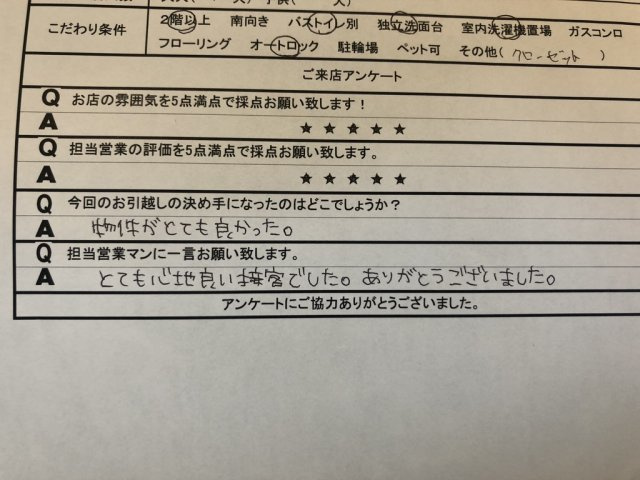 こだわり条件 2階以上 南向き バストイレ別 独立洗面台 室内洗濯機置場 ガスコンロ
フローリング オートロック 駐輪場 ペット可 その他( クローゼット )
ご来店アンケート
Q お店の雰囲気を5点満点で採点お願い致します!
A ★ ★ ★ ★ ★
Q 担当営業の評価を5点満点で採点お願い致します。
A ★ ★ ★ ★ ★
Q 今回のお引越しの決め手になったのはどこでしょうか?
A 物件がとても良かった。
Q 担当営業マンに一言お願い致します。
A とても心地良い接客でした。ありがとうございました。
アンケートにご協力ありがとうございました。